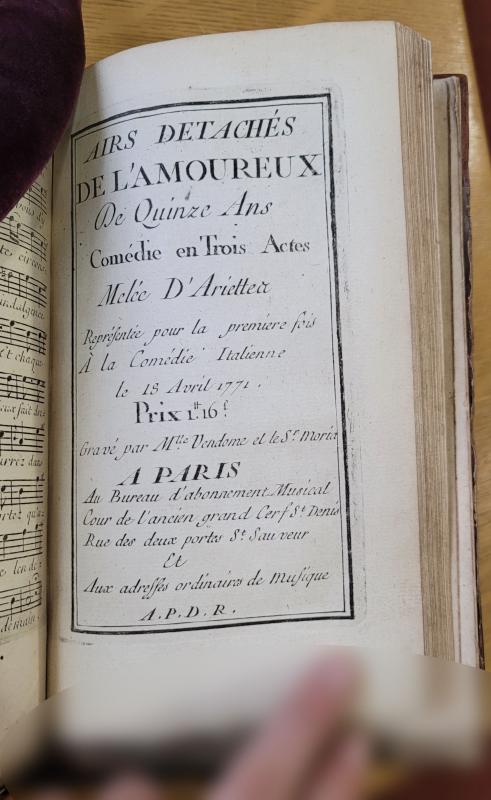 AIRS DETACHÉS
DE L'AMOUREUX
De Quinze Ans
Comédie en Trois Actes
Melée D'Ariettes
Représentée pour la premiere fois
À la Comédie Italienne
le 18 Avril 1771.
Prix 1tt 16s
Gravé par Mlle Vendome et le Sr Moria
A PARIS
Au Bureau d'abonnement Musical
Cour de l'ancien grand Cerf St Denis
Rue des deux portes St Sauveur
Et
Aux adresses ordinaires de Musique
A.P.D.R.